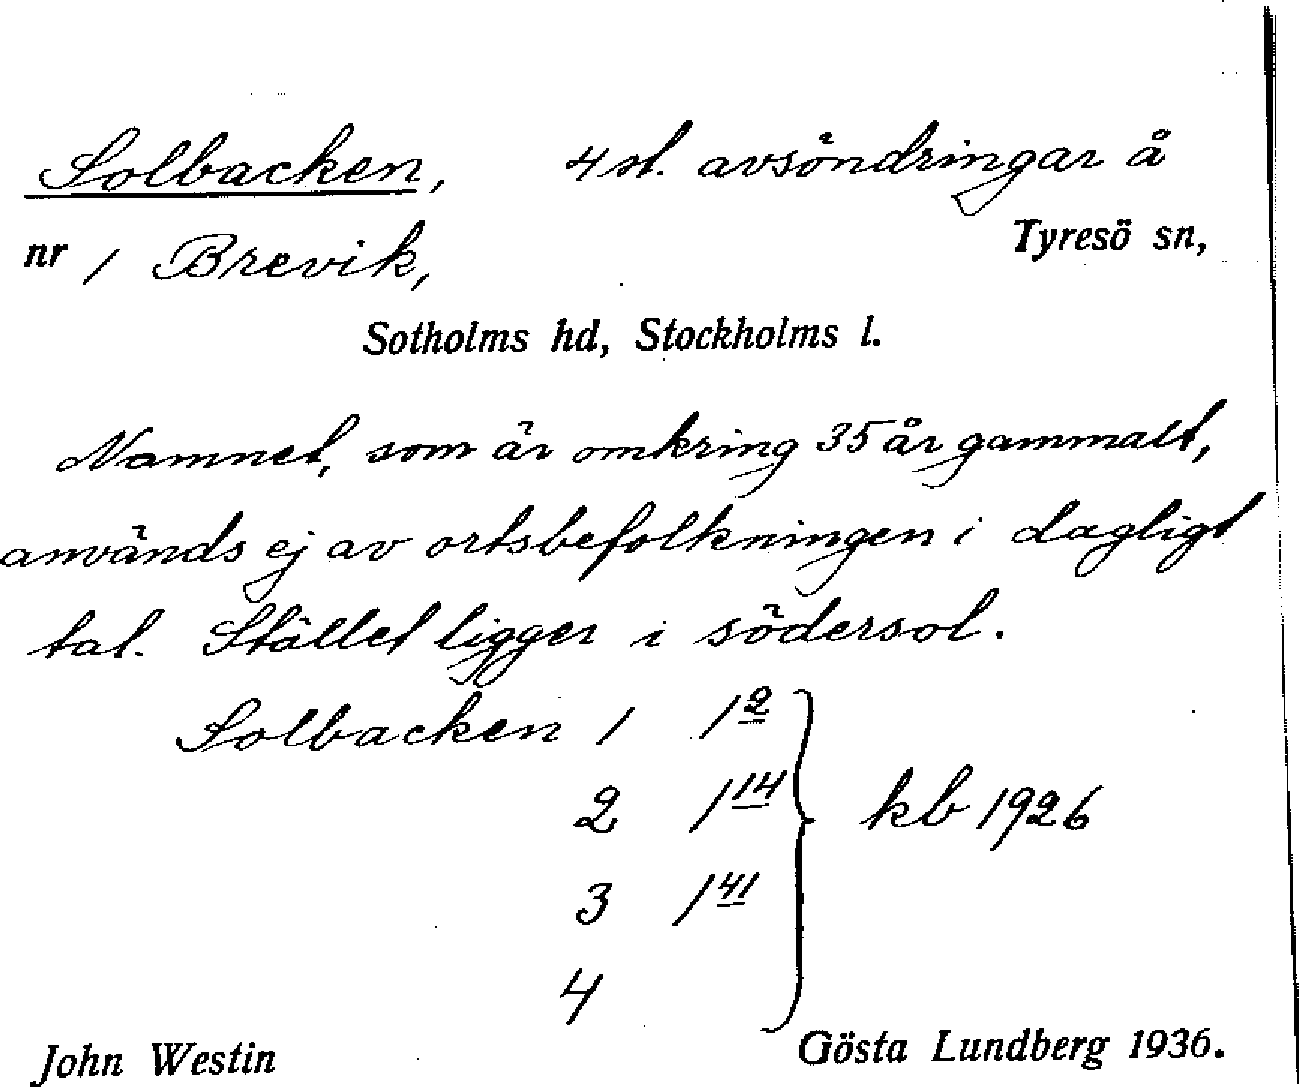 Solbacken, 4 st. avsöndringar å
nr 1 Brevik, Tyresö sn,
Sotholms hd, Stockholms l.
Namnet, som är omkring 35 år gammalt,
används ej av ortsbefolkningen i dagligt
tal. Stället ligger i södersol.
Solbacken 1 1 2
2 1 14 kb 1926
3 1 41
4
John Westin Gösta Lundberg 1936.